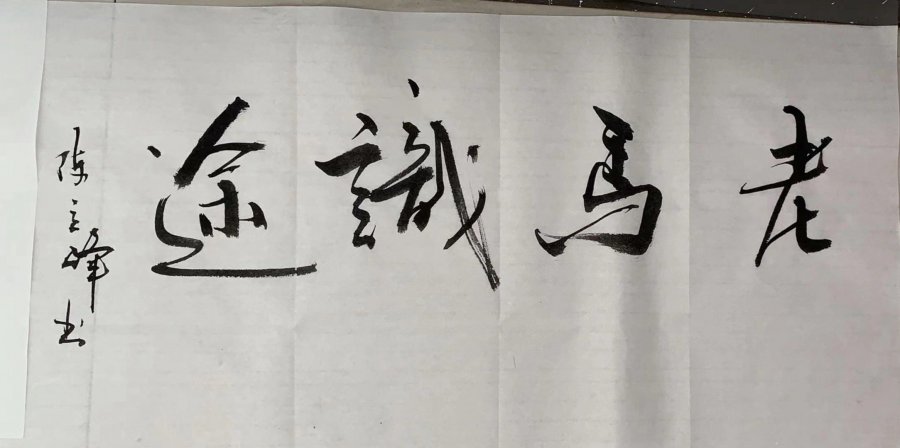 老馬識途
陈立峰书